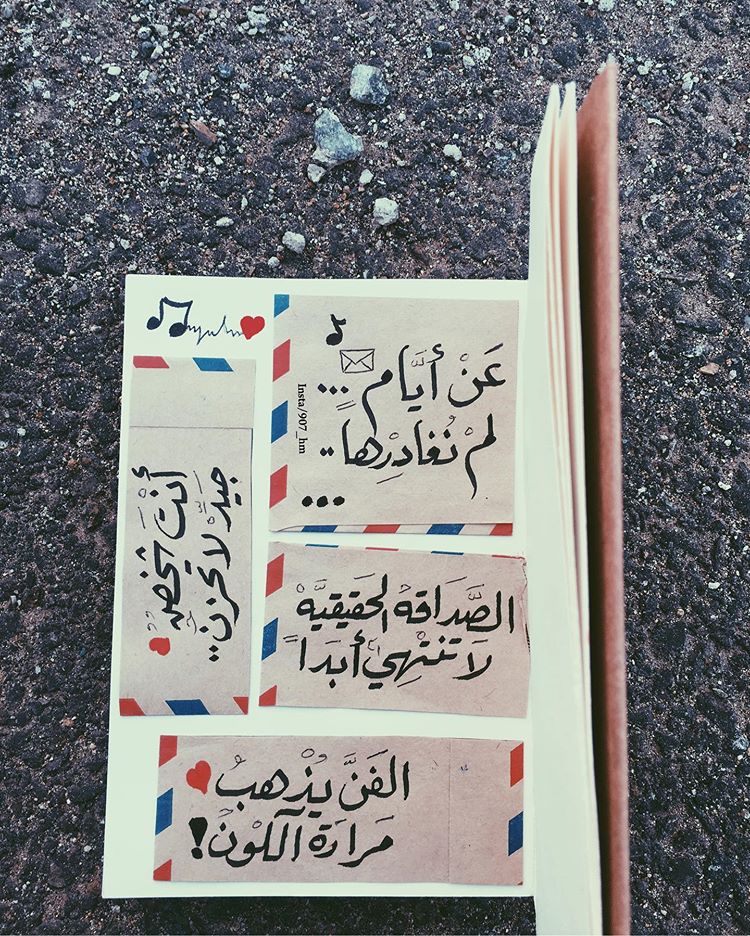 عَنْ أيَّام ...
لمْ نُغادِرْها..
...
Insta/907_hm
أنْتَ شخصٌ
جَيَّدْ لا يحزن..
الصَّدَاقهْ الحَقيقيَّهْ
لَا تنتْهِيْ أبَدَاً
الفَنَّ يُذْهبُ
مَرارَة اَلكونْ!